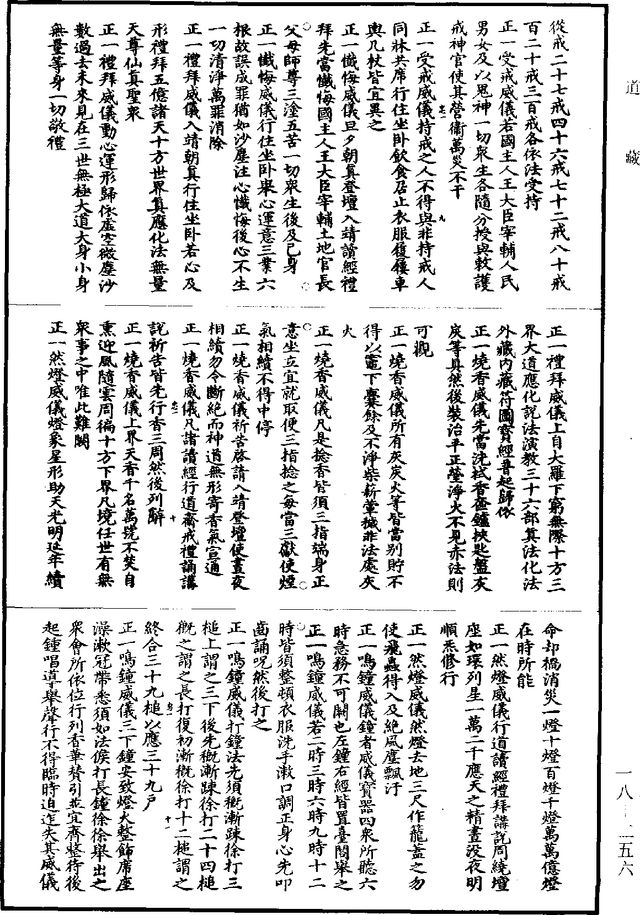 道藏
從戒二十七戒四十六戒七十二戒八十戒
百二十戒三百戒各依法受持
正一受戒威儀若國主人王大臣宰輔人民
男女及以鬼神一切衆生各隨分授與敕護
戒神官使其營衛萬災不干
正一受戒威儀持戒之人不得與非持戒人
同牀共席行住坐卧飲食居止衣服履屨車
輿几杖皆宜異之
正一懺悔威儀旦夕朝真登壇入靖讀經禮
拜先當懺悔國主人王大臣宰輔土地官長
父母師尊三塗五苦一切衆生後及已身
正一懺悔威儀行住坐卧舉心運意三業六
根故誤成罪猶如沙塵注心懺悔後心不生
一切清淨萬罪消除
正一禮拜威儀入靖朝真行住坐卧若心及
形禮拜五億諸天十方世界真應化法無量
天尊仙真聖衆
正一禮拜威儀動心運形歸依虛空微塵沙
數過去未來見在三世無極大道大身小身
無量等身一切敬禮
正一禮拜威儀上自大羅下窮無際十方三
界大道應化説法演教三十六部真法化法
外藏内藏符圖寶經普起歸依
正一燒香威儀先當洗拭香奩鑪挾匙盤灰
炭等具然後裝治平正瑩淨火不見赤法則
可觀
正一燒香威儀所有灰炭火等皆當别貯不
得以竈下爨餘及不淨柴薪葷穢非法處灰
火
正一燒香威儀凡是捻香皆須三指端身正
意坐立宜就取便三指捻之每當三獻使煙
氣相續不得中停
正一燒香威儀祈告啓請入靖登壇使晝夜
相續勿令斷絶而神道無形寄香氣宣通
正一燒香威儀凡諸讀經行道齋戒禮誦講
説祈告皆先行香三周然後列辭
正一燒香威儀上界天香千名萬號不焚自
熏迎風隨雲周徧十方下界凡境任世有無
衆事之中唯此難闕
正一然燈威儀燈象星形助天光明延年續
命却禍消災一燈十燈百燈千燈萬萬億燈
在時所能
正一然燈威儀行道讀經禮拜講説周繞壇
座如環列星一萬二千應天之精晝没夜明
順悉修行
正一然燈威儀然燈去地三尺作籠蓋之勿
使飛蟲得入及絶風塵飄汙
正一鳴鐘威儀鐘者威儀寶器四衆所聽六
時急務不可闕也左鐘右經皆置臺閣舉之
正一鳴鐘威儀若二時三時六時九時十二
時皆須整頓衣服洗手漱口調正身心先叩
齒誦呪然後打之
正一鳴鐘威儀打鐘法先須穊漸踈徐打三
槌上謂之三下後先穊漸踈徐打二十四槌
穊之謂之長打復初漸穊徐打十二槌謂之
終合三十九槌以應三十九户
正一鳴鐘威儀三下鐘安致燈火整飾席座
澡漱冠帶悉須如法俟打長鐘徐徐舉出之
衆會所依位行列香華賛引並宜齊整待後
起鍾唱導舉聲行不得臨時迫迮失其威儀
一八—二五六